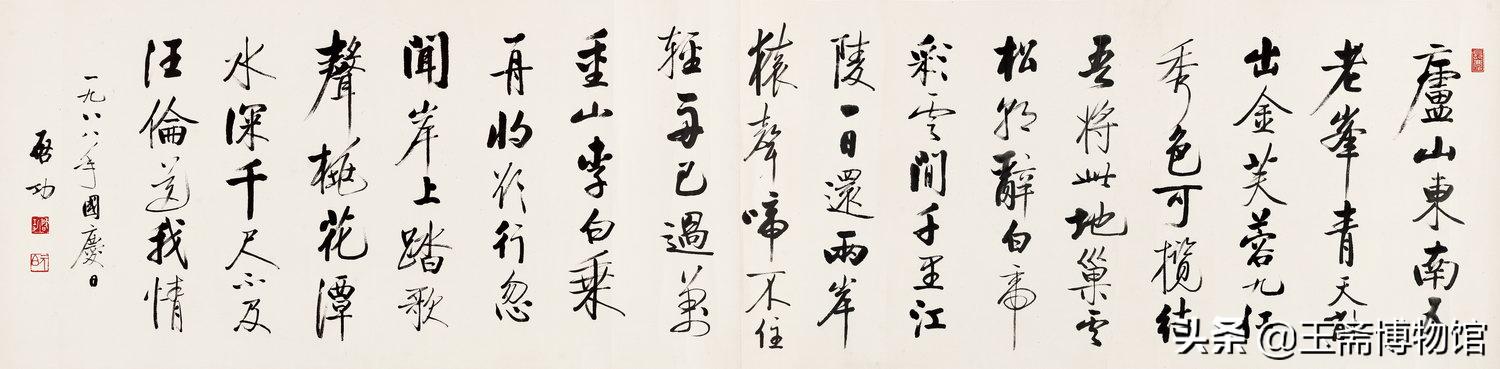 廬山東南五
老峯青天削
出金芙蓉九江
秀色可攬結
吾將此地巢雲
松朝辭白帝
彩雲間千里江
陵一日還兩岸
猿聲啼不住
輕舟已過萬
重山李白乘
舟將欲行忽
聞岸上踏歌
聲桃花潭
水深千尺不及
汪倫送我情
一九八八年國慶日
啟功
头条 @玉斋博物馆